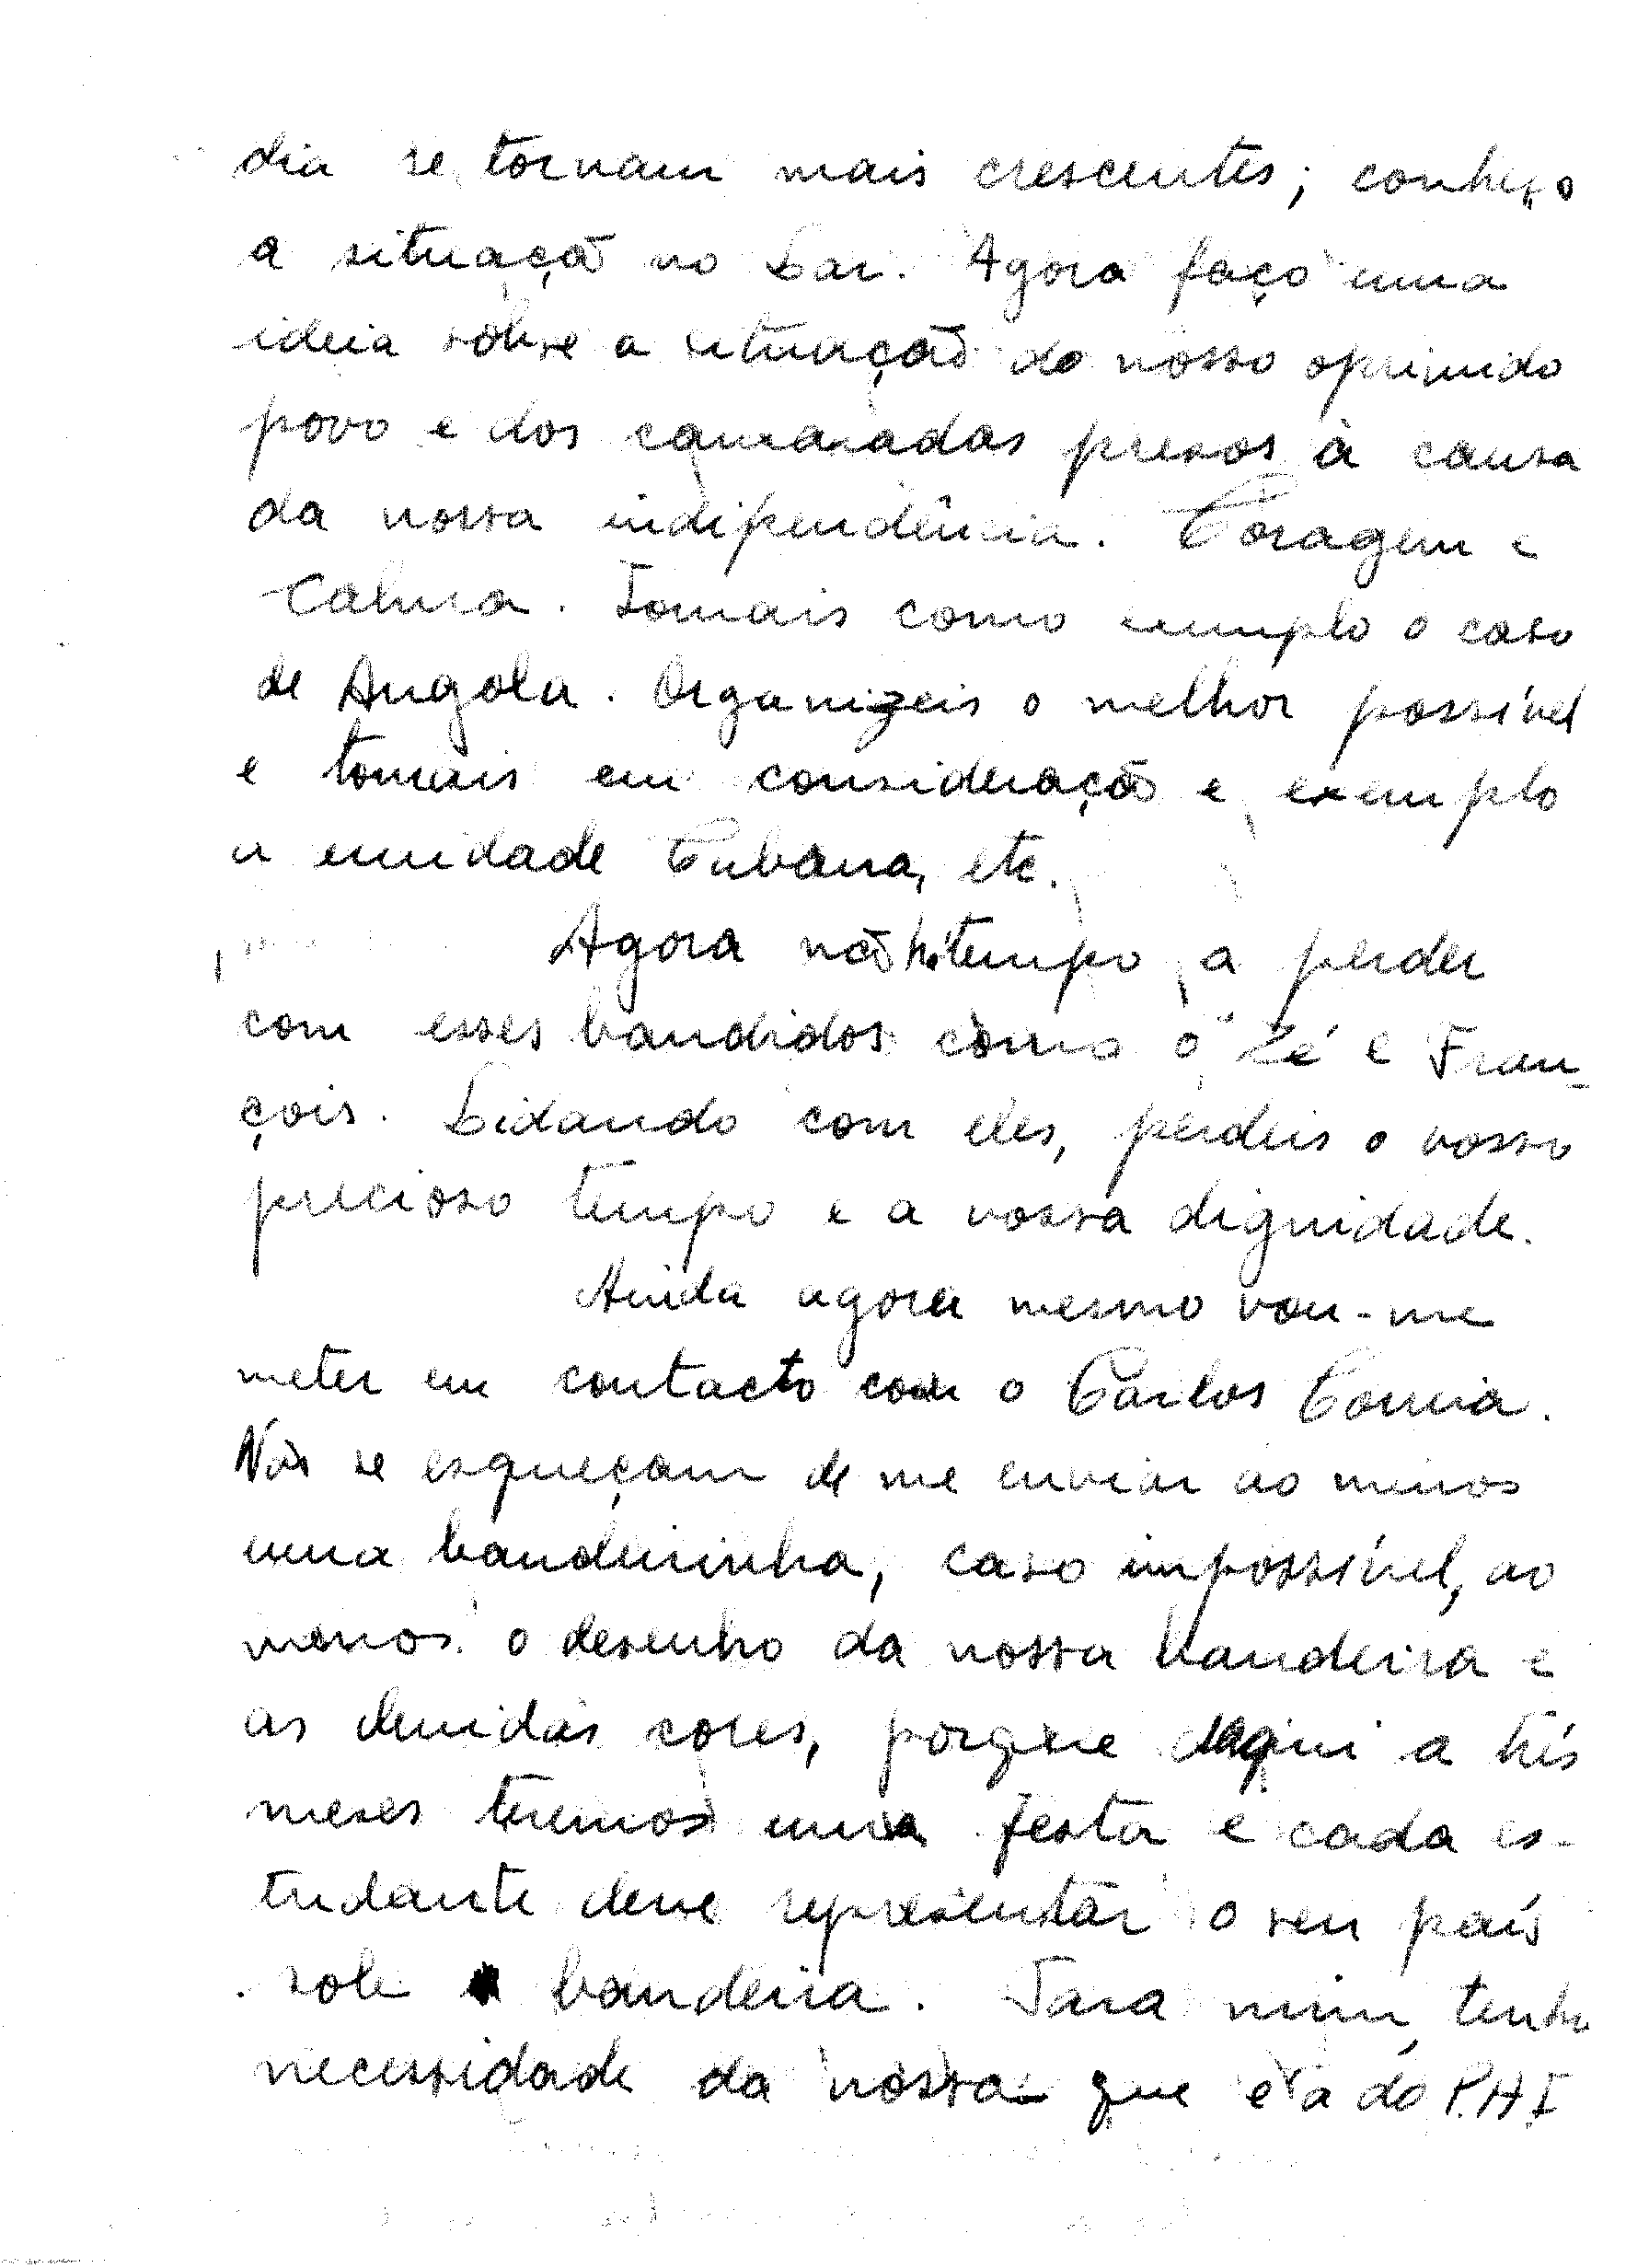 dia se tornam mais crescentes; conheço
a situação no Lar. Agora faço uma
ideia sôbre a situação do nosso oprimido
povo e dos camaradas presos à causa
da nossa indipendência. Coragem e
Calma. Tomais como exemplo o caso
de Angola. Organizeis o melhor possível
e tomais em consideração e exemplo
a unidade Cubana, etc.
Agora não há tempo a perder
com esses bandidos como o Zé e Fran-
çois. Lidando com eles, perdeis o vosso
precioso tempo e a vossa dignidade.
Ainda agora mesmo vou-me
meter em contacto com o Carlos Correia.
Não se esqueçam de me enviar ao menos
uma bandeirinha, caso impossível, ao
menos o desenho da nossa bandeira e
as devidas cores, porque daqui a três
meses teremos uma festa e cada es-
tudante deve representar o seu país
sob bandeira. Para mim, tenho
necessidade da nossa que é a do P.A.I